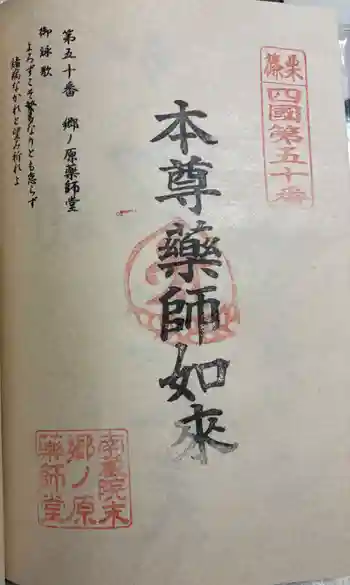 篠栗
四國第五十番
本尊藥師如來
第五十番 郷ノ原薬師堂
御詠歌
よろずこそ繁多なりとも怠らず
諸病なかれと望み祈れよ
南藏院末
郷ノ原
藥師堂